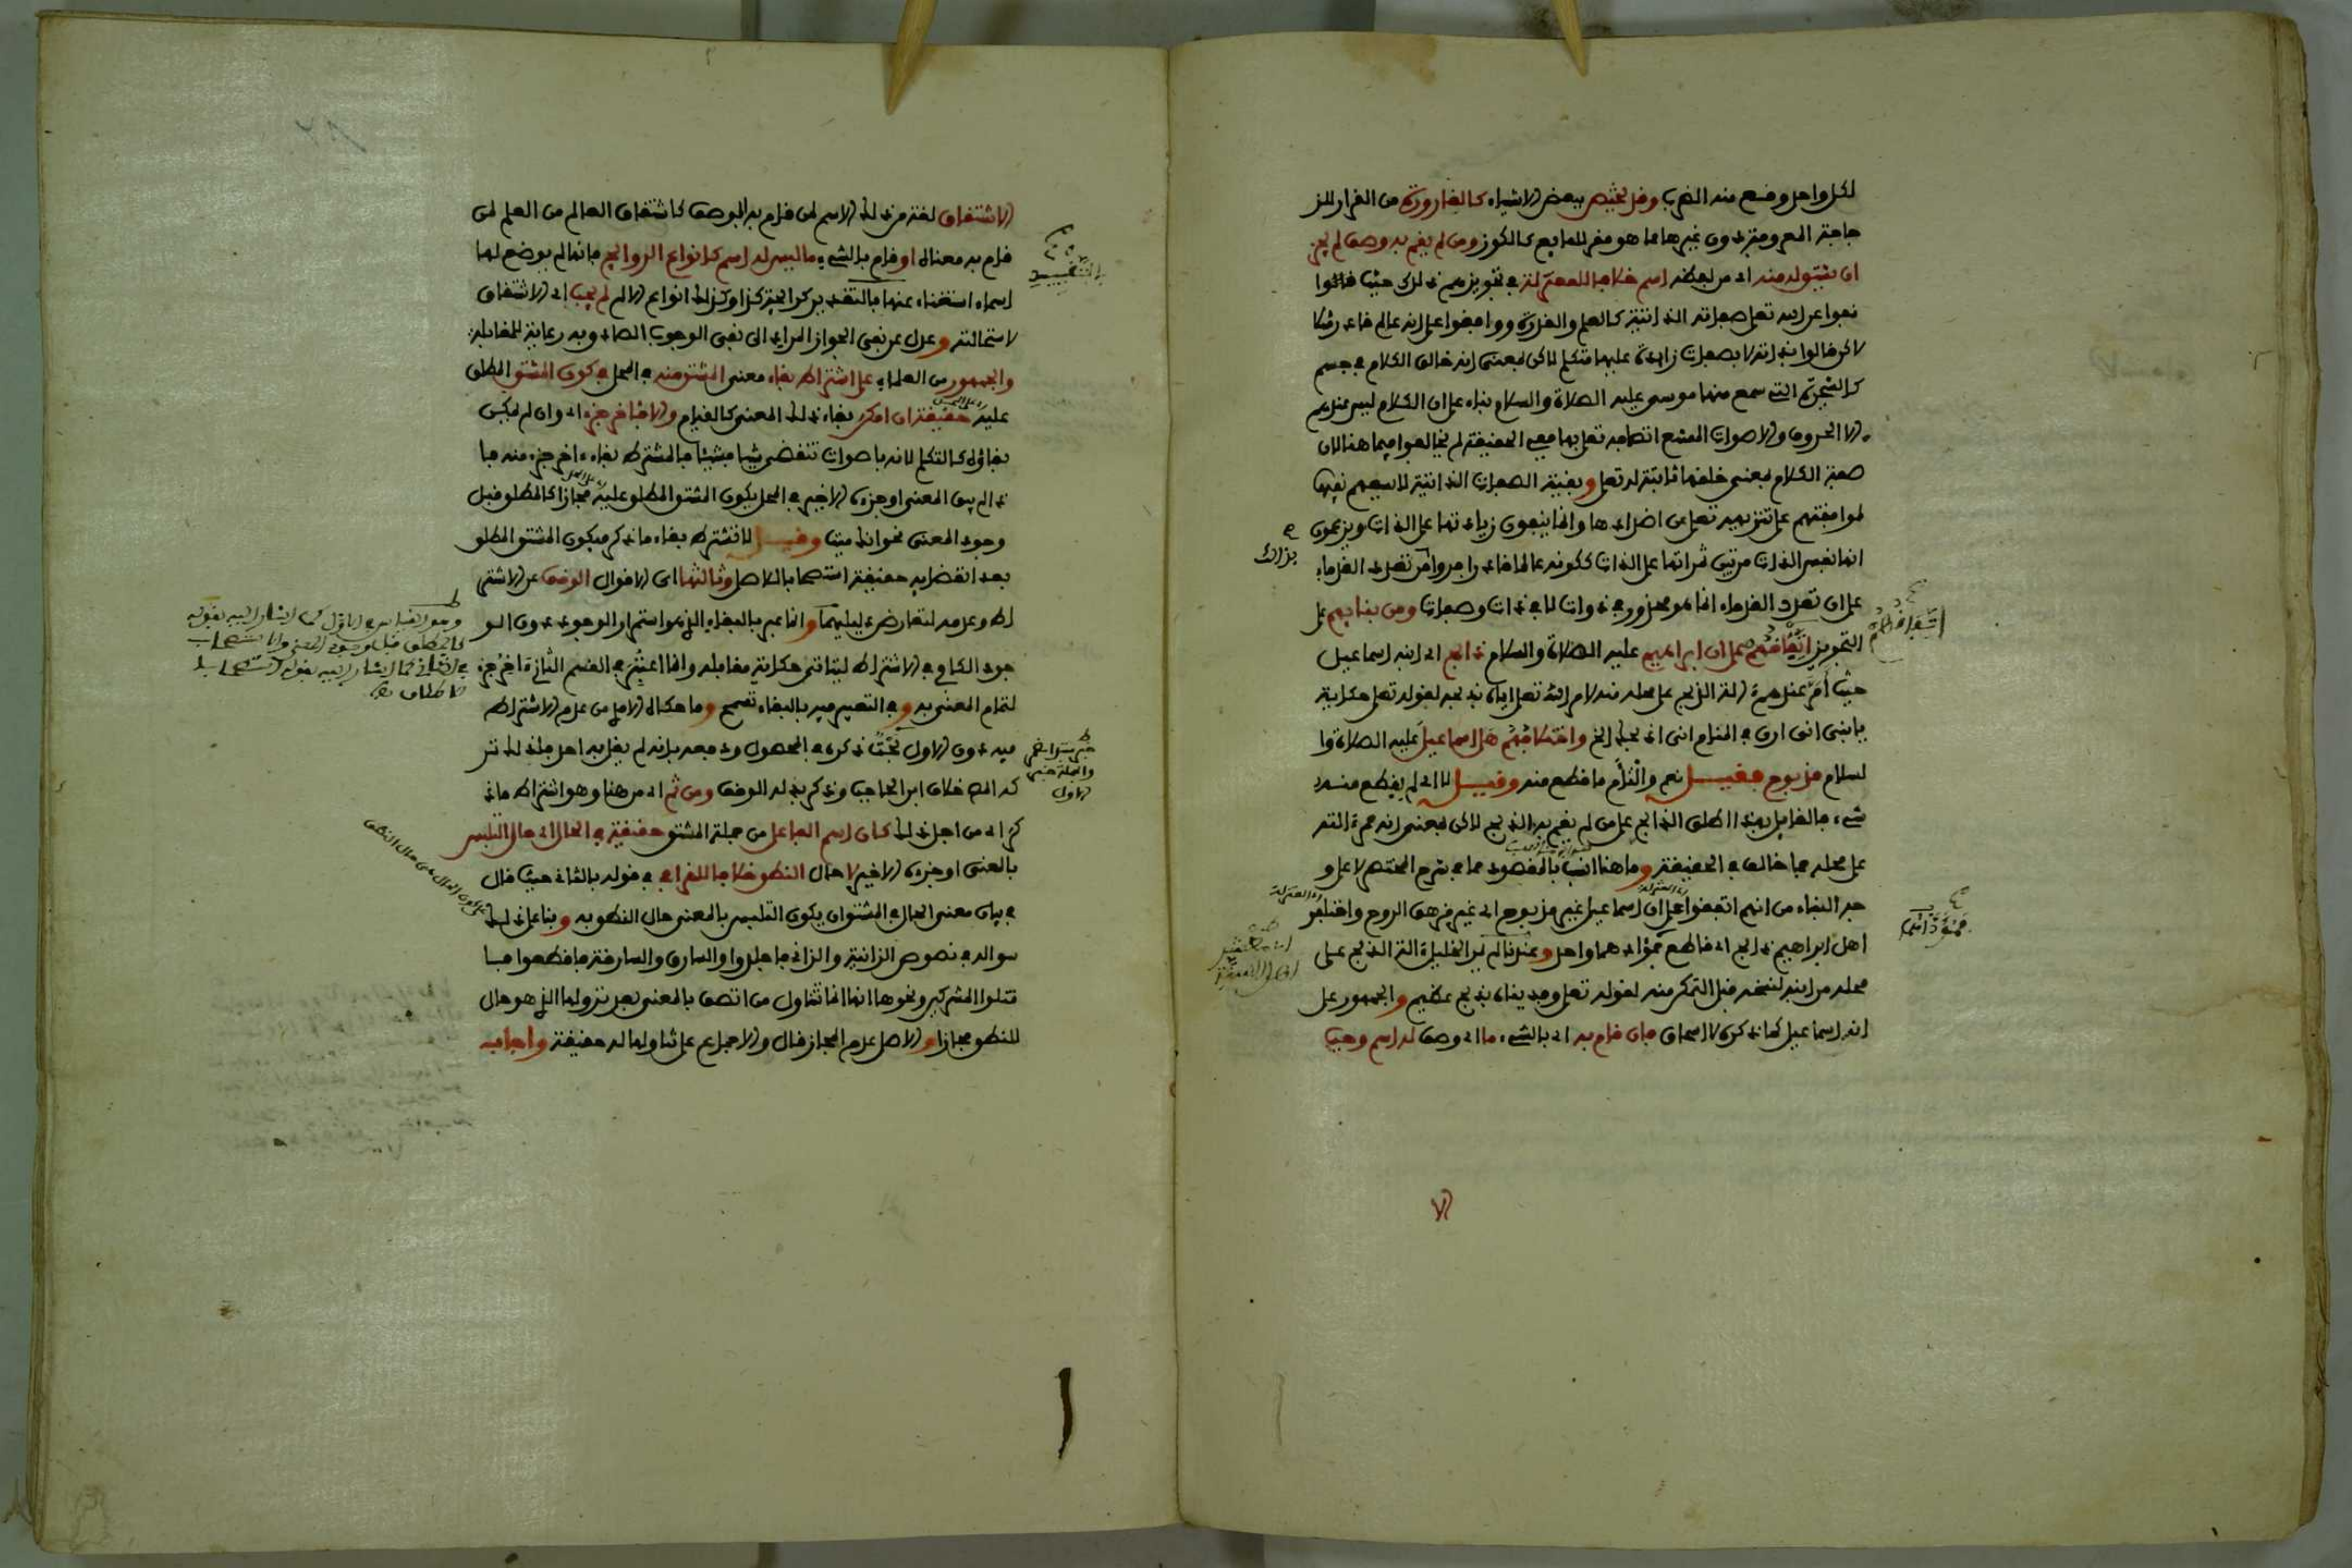 لكل واحد وقع منه الضرب وقد يختص ببعض الاشياء كالقارورة من القرار للز
جاجة المعروفة دون غيرها مما هو مقر للمايع كالكوز ومن لم يقم به وصف لم يجز
ان يشتق له منه اي من لفظه اسم خلافا للمعتزلة في تجويزهم ذلك حيث قالوا
نفوا عن الله تعلى صفاته الذاتية كالعلم والقدرة ووافقوا على انه عالم قادر مثلا
لاكن قالوا بذاته لا بصفات زايدة عليها متكلم لاكن بمعنى انه خالق الكلام في جسم
كالشجرة التي سمع منها موسى عليه الصلاة والسلام بناء على ان الكلام ليس عندهم
الا الحروف والاصوات الممتنع اتصافه تعلى بها ففي الحقيقة لم يخالفوا فيما هنا لان
صفة الكلام بمعنى خلقها ثابتة له تعلى وبقية الصفات الذاتية لا يسعهم نفيها
لموافقتهم على تنزيهه تعلى عن اضدادها وانما ينفون زيادتها على الذات ويزعمون
انها نفس الذات مرتبين ثمراتها على الذات ككونه عالما قادرا فروا من تعدد القدماء
على ان تعدد القدماء انما هو محذور في ذوات لا في ذات وصفات ومن بنايهم على
التجويز اتفاقهم على ان ابراهيم عليه الصلاة والسلام ذابح اي ابنه اسماعيل
حيث أمر عندهم ءالة الذبح على محله منه لامر الله تعلى اياه بذبحه لقوله تعلى حكاية
يا بني اني ارى في المنام اني اذبحك الخ واختلافهم هل اسماعيل عليه الصلاة وا
لسلام مذبوح فقيل نعم والتأم ما قطع منه وقيل لا اي لم يقطع منه
شيء فالقايل بهذا اطلق الذابح على من لم يقم به الذبح لاكن بمعنى انه ممر ءالته
على محله فما خالف في الحقيقة وما هنا انسب بالمقصود مما في شرح المختصر لاعلى و
جه البناء من انهم اتفقوا على ان اسماعيل غير مذبوح اي غير مزهق الروح واختلفو
اهل ابراهيم ذابح اي قاطع فمؤداهما واحد وعندنا لم يمر الخليل ءالة الذبح على
محله من ابنه لنسخه قبل التمكن منه لقوله تعلى وفديناه بذبح عظيم والجمهور على
انه اسماعيل كما ذكره لا اسحاق فان قام به اي بالشيء ما اي وصف له اسم وجب
الا
الاشتقاق لغة من ذلك الاسم لمن قام به الوصف كاشتقاق العالم من العلم لمن
قام به معناه او قام بالشيء ما ليس له اسم كانواع الروايح فانها لم يوضع لها
اسماء استغناء عنها بالتقييد كرايحة كذا وكذلك انواع الالم لم يجب اي الاشتقاق
لاستحالته وعدل عن نفي الجواز المراد الى نفي الوجوب الصادق به رعاية للمقابلة
والجمهور من العلماء على اشتراط بقاء معنى المشتق منه في المحل في كون المشتق المطلق
عليه حقيقة ان امكن بقاء ذلك المعنى كالقيام والا فاخر جزء اي وان لم يمكن
بقاؤه كالتكلم لانه باصوات تنقضي شيا فشيئا فالمشترط بقاء ءاخر جزء منه فا
ذا لم يبق المعنى او جزءه الاخير في المحل يكون المشتق المطلق عليه مجازا كالمطلق قبل
وجود المعنى نحو انك ميت وقيل لا نشترط بقاء ما ذكر فيكون المشتق المطلق
بعد انقضايه حقيقة استصحابا للاصل وثالثها اي الاقوال الوقف عن الاشتر
اط وعدمه لتعارض دليليهما وانما عبر بالبقاء الذي هو استمرار الوجود دون الو
جود الكافي في الاشتراط ليتاتى حكاية مقابله وانما اعتبر في القسم الثاني ءاخر جزء
لتمام المعنى به وفي التعبير فيه بالبقاء تسمح وما حكاه الامدي من عدم الاشتراط
فيه دون الاول بحثا ذكره في المحصول ودفعه بانه لم يقل به احد فلذلك تر
كه المص خلاف ابن الحاجب وذكر بدله الوقف ومن ثم اي من هنا وهو اشتراط ما ذ
كر اي من اجل ذلك كان اسم الفاعل من جملة المشتق حقيقة في الحال اي حال التلبس
بالمعنى او جزءه الاخير لا حال النطق خلافا للقرافي في قوله بالثاني حيث قال
في بيان معنى الحال في المشتق ان يكون التلبس بالمعنى حال النطق به وبنا على ذلك
سواله في نصوص الزانية والزاني فاجلدوا والسارق والسارقة فاقطعوا فا
قتلوا المشركين ونحوها انها انما تتناول من اتصف بالمعنى بعد نزولها الذي هو حال
النطق مجازا والاصل عدم المجاز قال والاجماع على تناولها له حقيقة واجاب